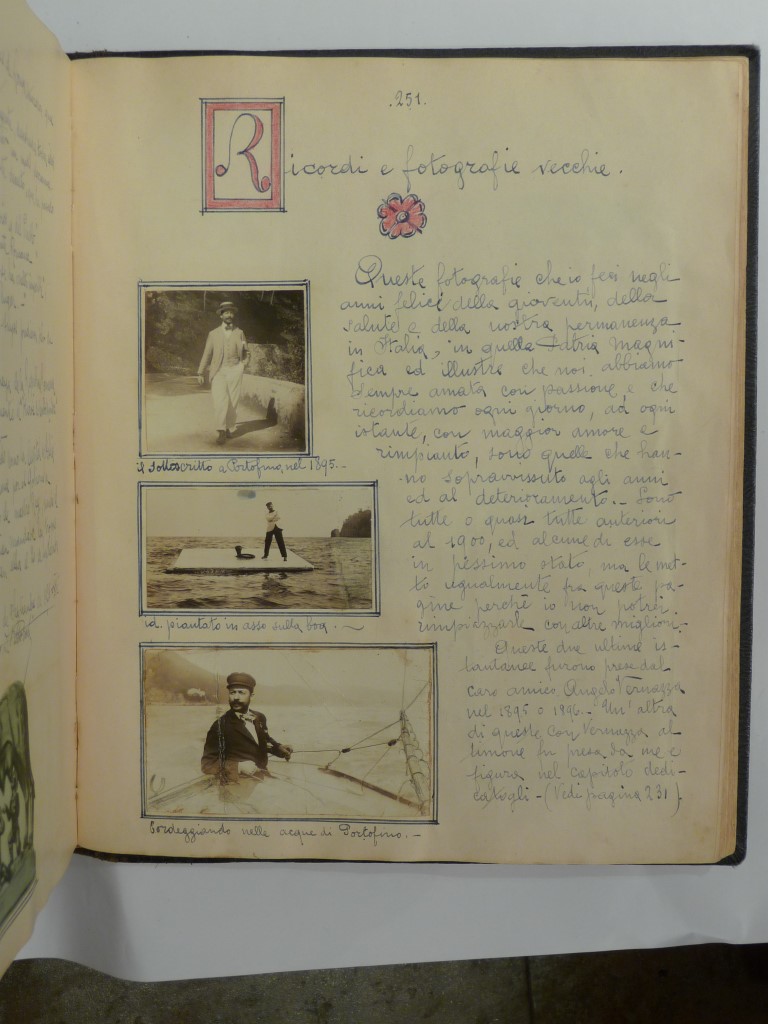 .251.
Ricordi e fotografie vecchie.
Queste fotografie che io feci negli
anni felici della gioventù, della
salute e della nostra permanenza
in Italia, in quella Patria magni-
fica ed illustre che noi abbiamo
sempre amata con passione, e che
ricordiamo ogni giorno, ad ogni
istante, con maggior amore e
rimpianto, sono quelle che han-
no sopravvissuto agli anni
ed al deterioramento.- Sono
tutte o quasi tutte anteriori
al 1900, ed alcune di esse
in pessimo stato, ma le met-
to ugualmente fra queste pa-
gine perchè io non potrei
rimpiazzarle con altre migliori.-
Queste due ultime is-
tantanee furono prese dal
caro amico Angelo Vernazza
nel 1895 o 1896.- Un'altra
di queste con Vernazza al
timone fu presa da me e
figura nel capitolo dedi-
catogli - (Vedi pagina 231).
il sottoscritto a Portofino, nel 1895.-
id. piantato in asso sulla boa.-
Bordeggiando nelle acque di Portofino.-